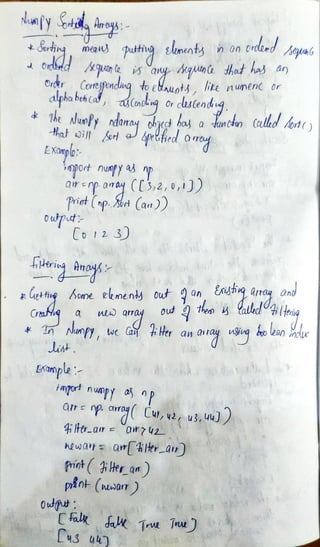 NumPy Sorting Arrays:-
* Sorting means putting elements in an orderd sequence
* orderd sequence is any sequence that has an
order corresponding to elements, like numeric or
alphabetical, ascending or descending.
* The NumPy ndarray object has a function called sort()
that will sort a specified array
Example:-
import numpy as np
arr = np.array ([3,2,0,1])
print (np.sort (arr))
output:-
[0 1 2 3]
Filtering Arrays:-
* Getting some elements out of an existing array and
creating a new array out of them is called filtering
* In Numpy, we can filter an array using boolean index
list.
Example:-
import numpy as np
arr = np. array( [41, 42, 43, 44])
filter_arr = arr > 42
newarr = arr[filter_arr]
print ( filter_arr )
print (newarr)
output:-
[False false True True]
[43 44]